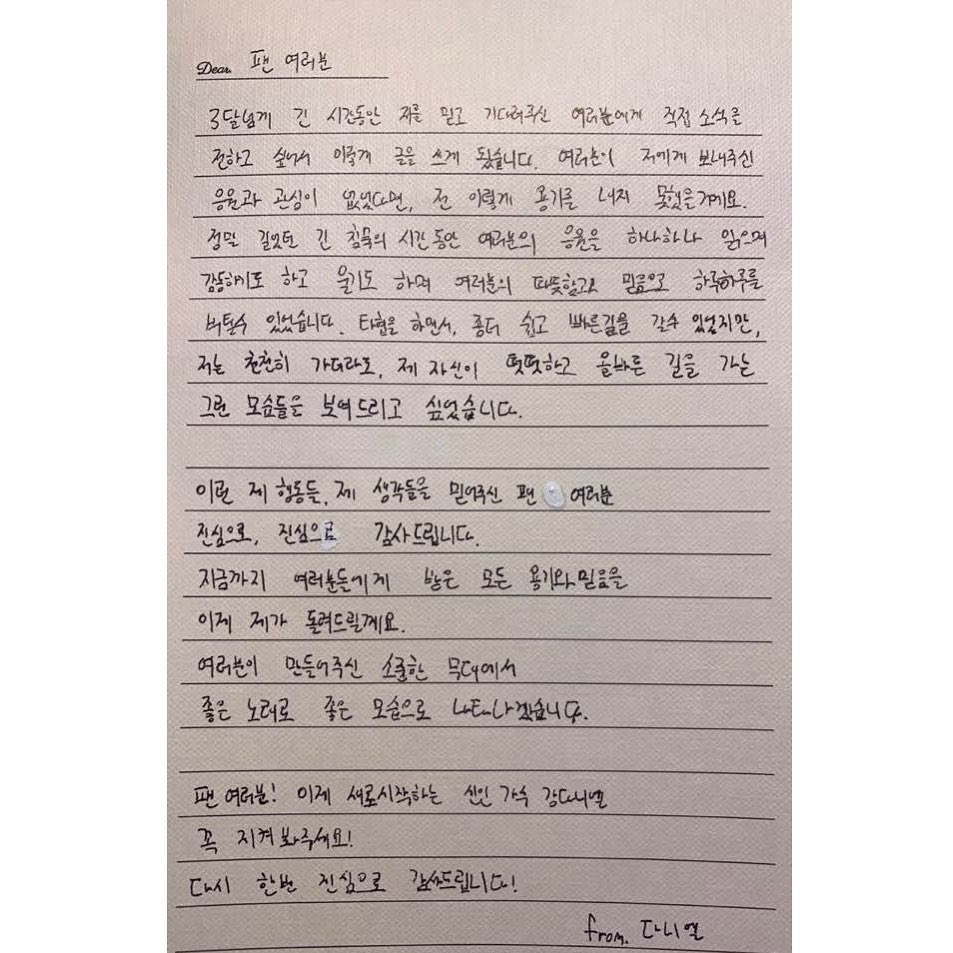 Dear. 팬 여러분
3달넘게 긴 시간동안 저를 믿고 기다려주신 여러분에게 직접 소식을
전하고 싶어서 이렇게 글을 쓰게 됬습니다. 여러분이 저에게 보내주신
응원과 관심이 없었다면, 전 이렇게 용기를 내지 못했을거에요.
정말 길었던 긴 침묵의 시간동안 여러분의 응원을 하나하나 읽으며
감동하기도 하고 울기도 하며 여러분의 따뜻함과 믿음으로 하루하루를
버틸수 있었습니다. 타협을 하면서, 좀더 쉽고 빠른길을 갈수 있었지만,
저는 천천히 가더라도, 제 자신이 떳떳하고 올바른 길을 가는
그런 모습들을 보여드리고 싶었습니다.
이런 제 행동들, 제 생각들을 믿어주신 팬 여러분
진심으로, 진심으로 감사드립니다.
지금까지 여러분들에게 받은 모든 용기와 믿음을
이제 제가 돌려드릴게요.
여러분이 만들어주신 소중한 무대에서
좋은 노래로 좋은 모습으로 나타나겠습니다.
팬 여러분! 이제 새로시작하는 신인 가수 강다니엘
꼭 지켜봐주세요!
다시 한번 진심으로 감사드립니다!
from. 다니엘